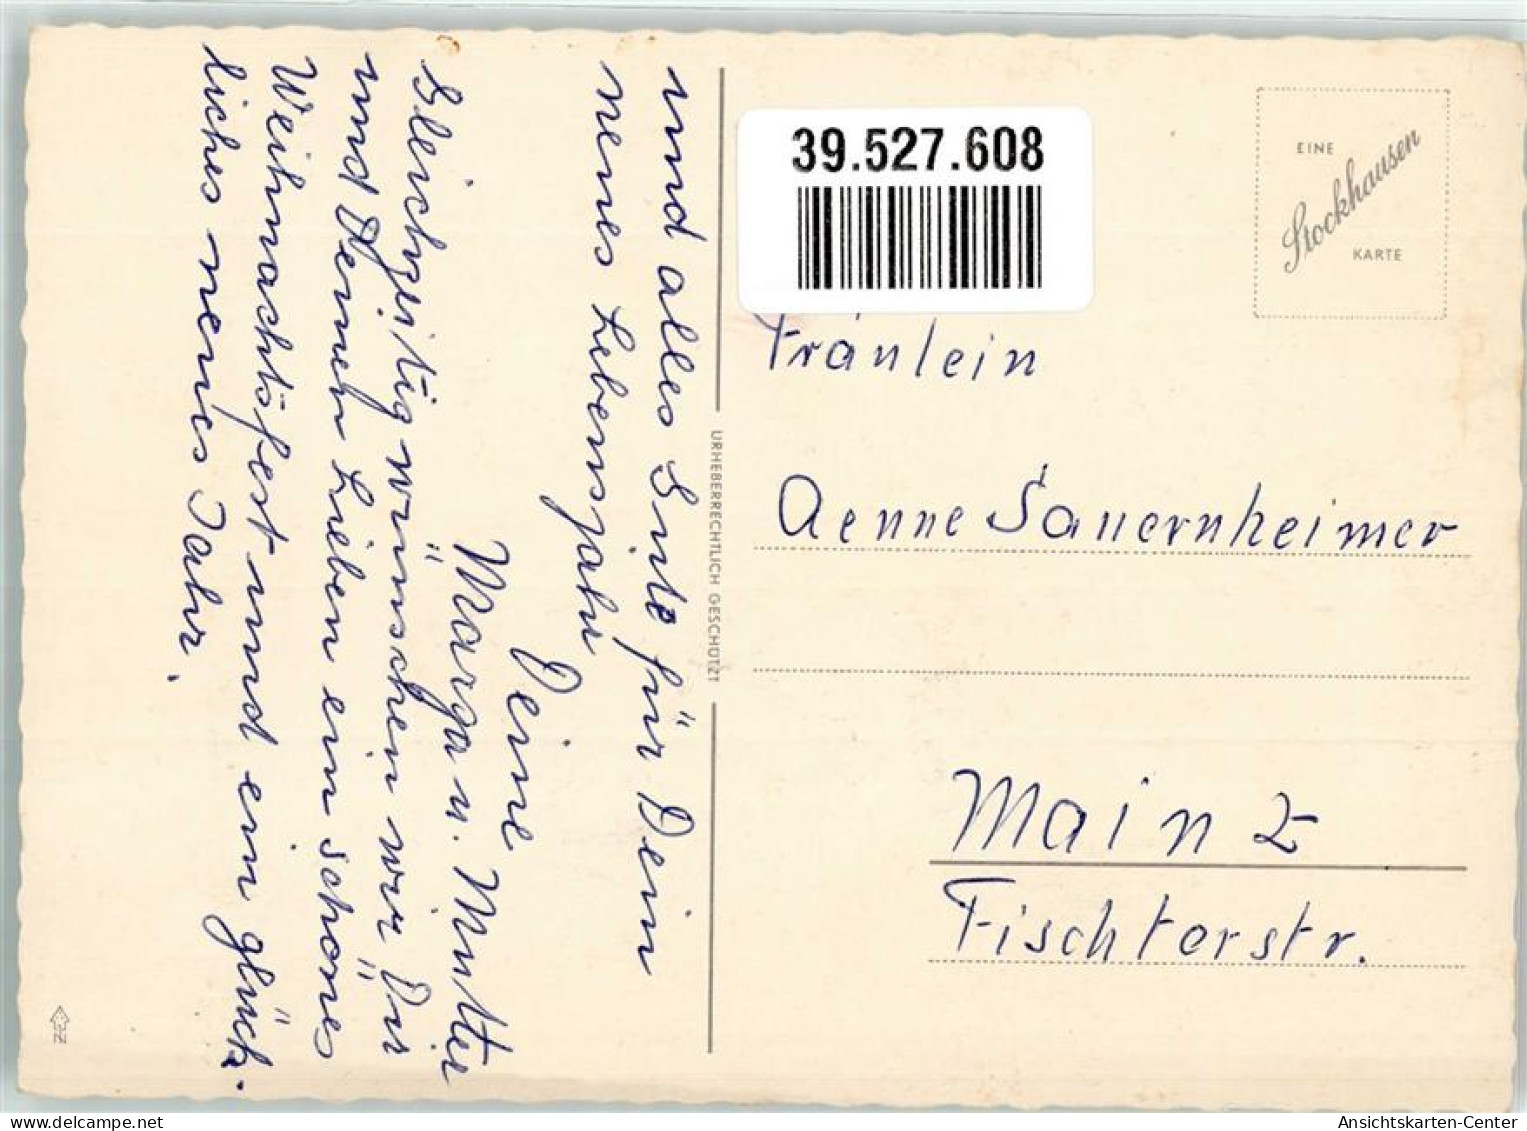 und alles Gute für Dein
neues Lebensjahr
Deine
Marga u. Mutter
Gleichzeitig wünschen wir Dir
und Deinen Lieben ein schönes
Weihnachtsfest und ein glück-
liches neues Jahr.
URHEBERRECHTLICH GESCHÜTZT
39.527.608
EINE
Stockhausen
KARTE
Fräulein
Aenne Sauernheimer
Mainz
Fischtorstr.
www.delcampe.net
Ansichtskarten-Center